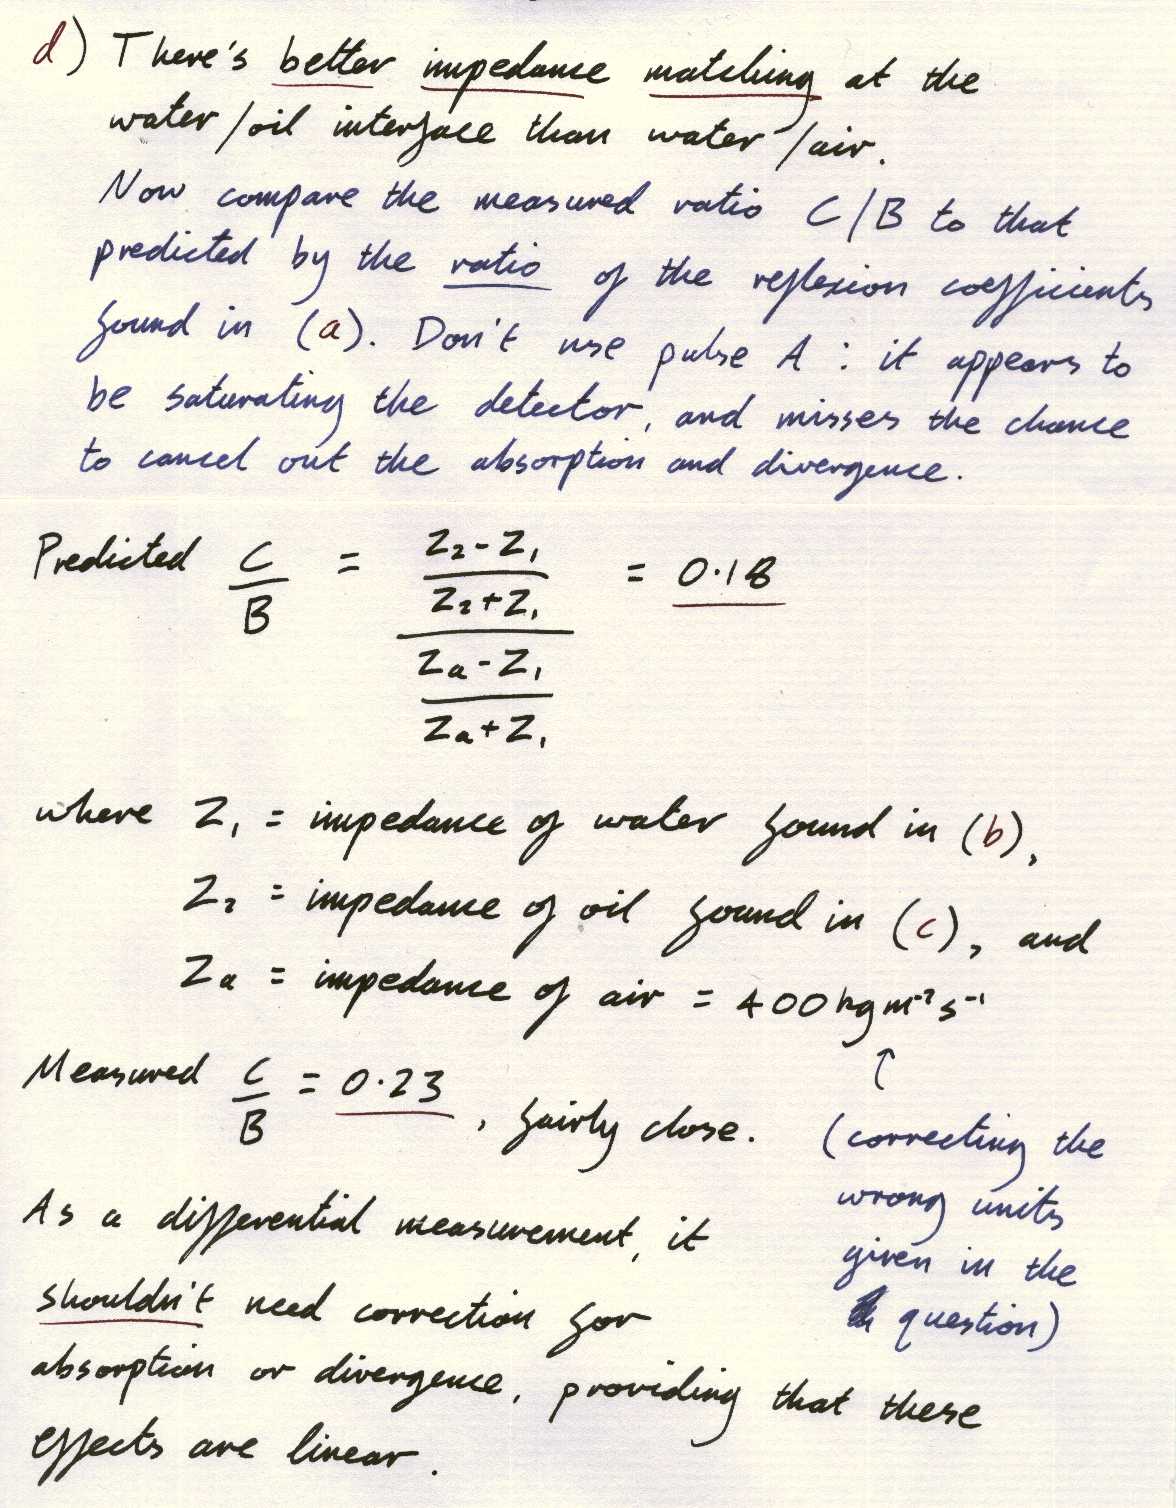 d) There's better impedance matching at the
water/oil interface than water/air.
Now compare the measured ratio C/B to that
predicted by the ratio of the reflexion coefficients
found in (a). Don't use pulse A : it appears to
be saturating the detector, and misses the chance
to cancel out the absorption and divergence.
Predicted C/B = ((Z₂-Z₁)/(Z₂+Z₁))/((Za-Z₁)/(Za+Z₁)) = 0.18
where Z₁ = impedance of water found in (b),
Z₂ = impedance of oil found in (c), and
Za = impedance of air = 400 kg m⁻² s⁻¹
↑
Measured C/B = 0.23, fairly close.
(correcting the
wrong units
given in the
question)
As a differential measurement, it
shouldn't need correction for
absorption or divergence, providing that these
effects are linear.